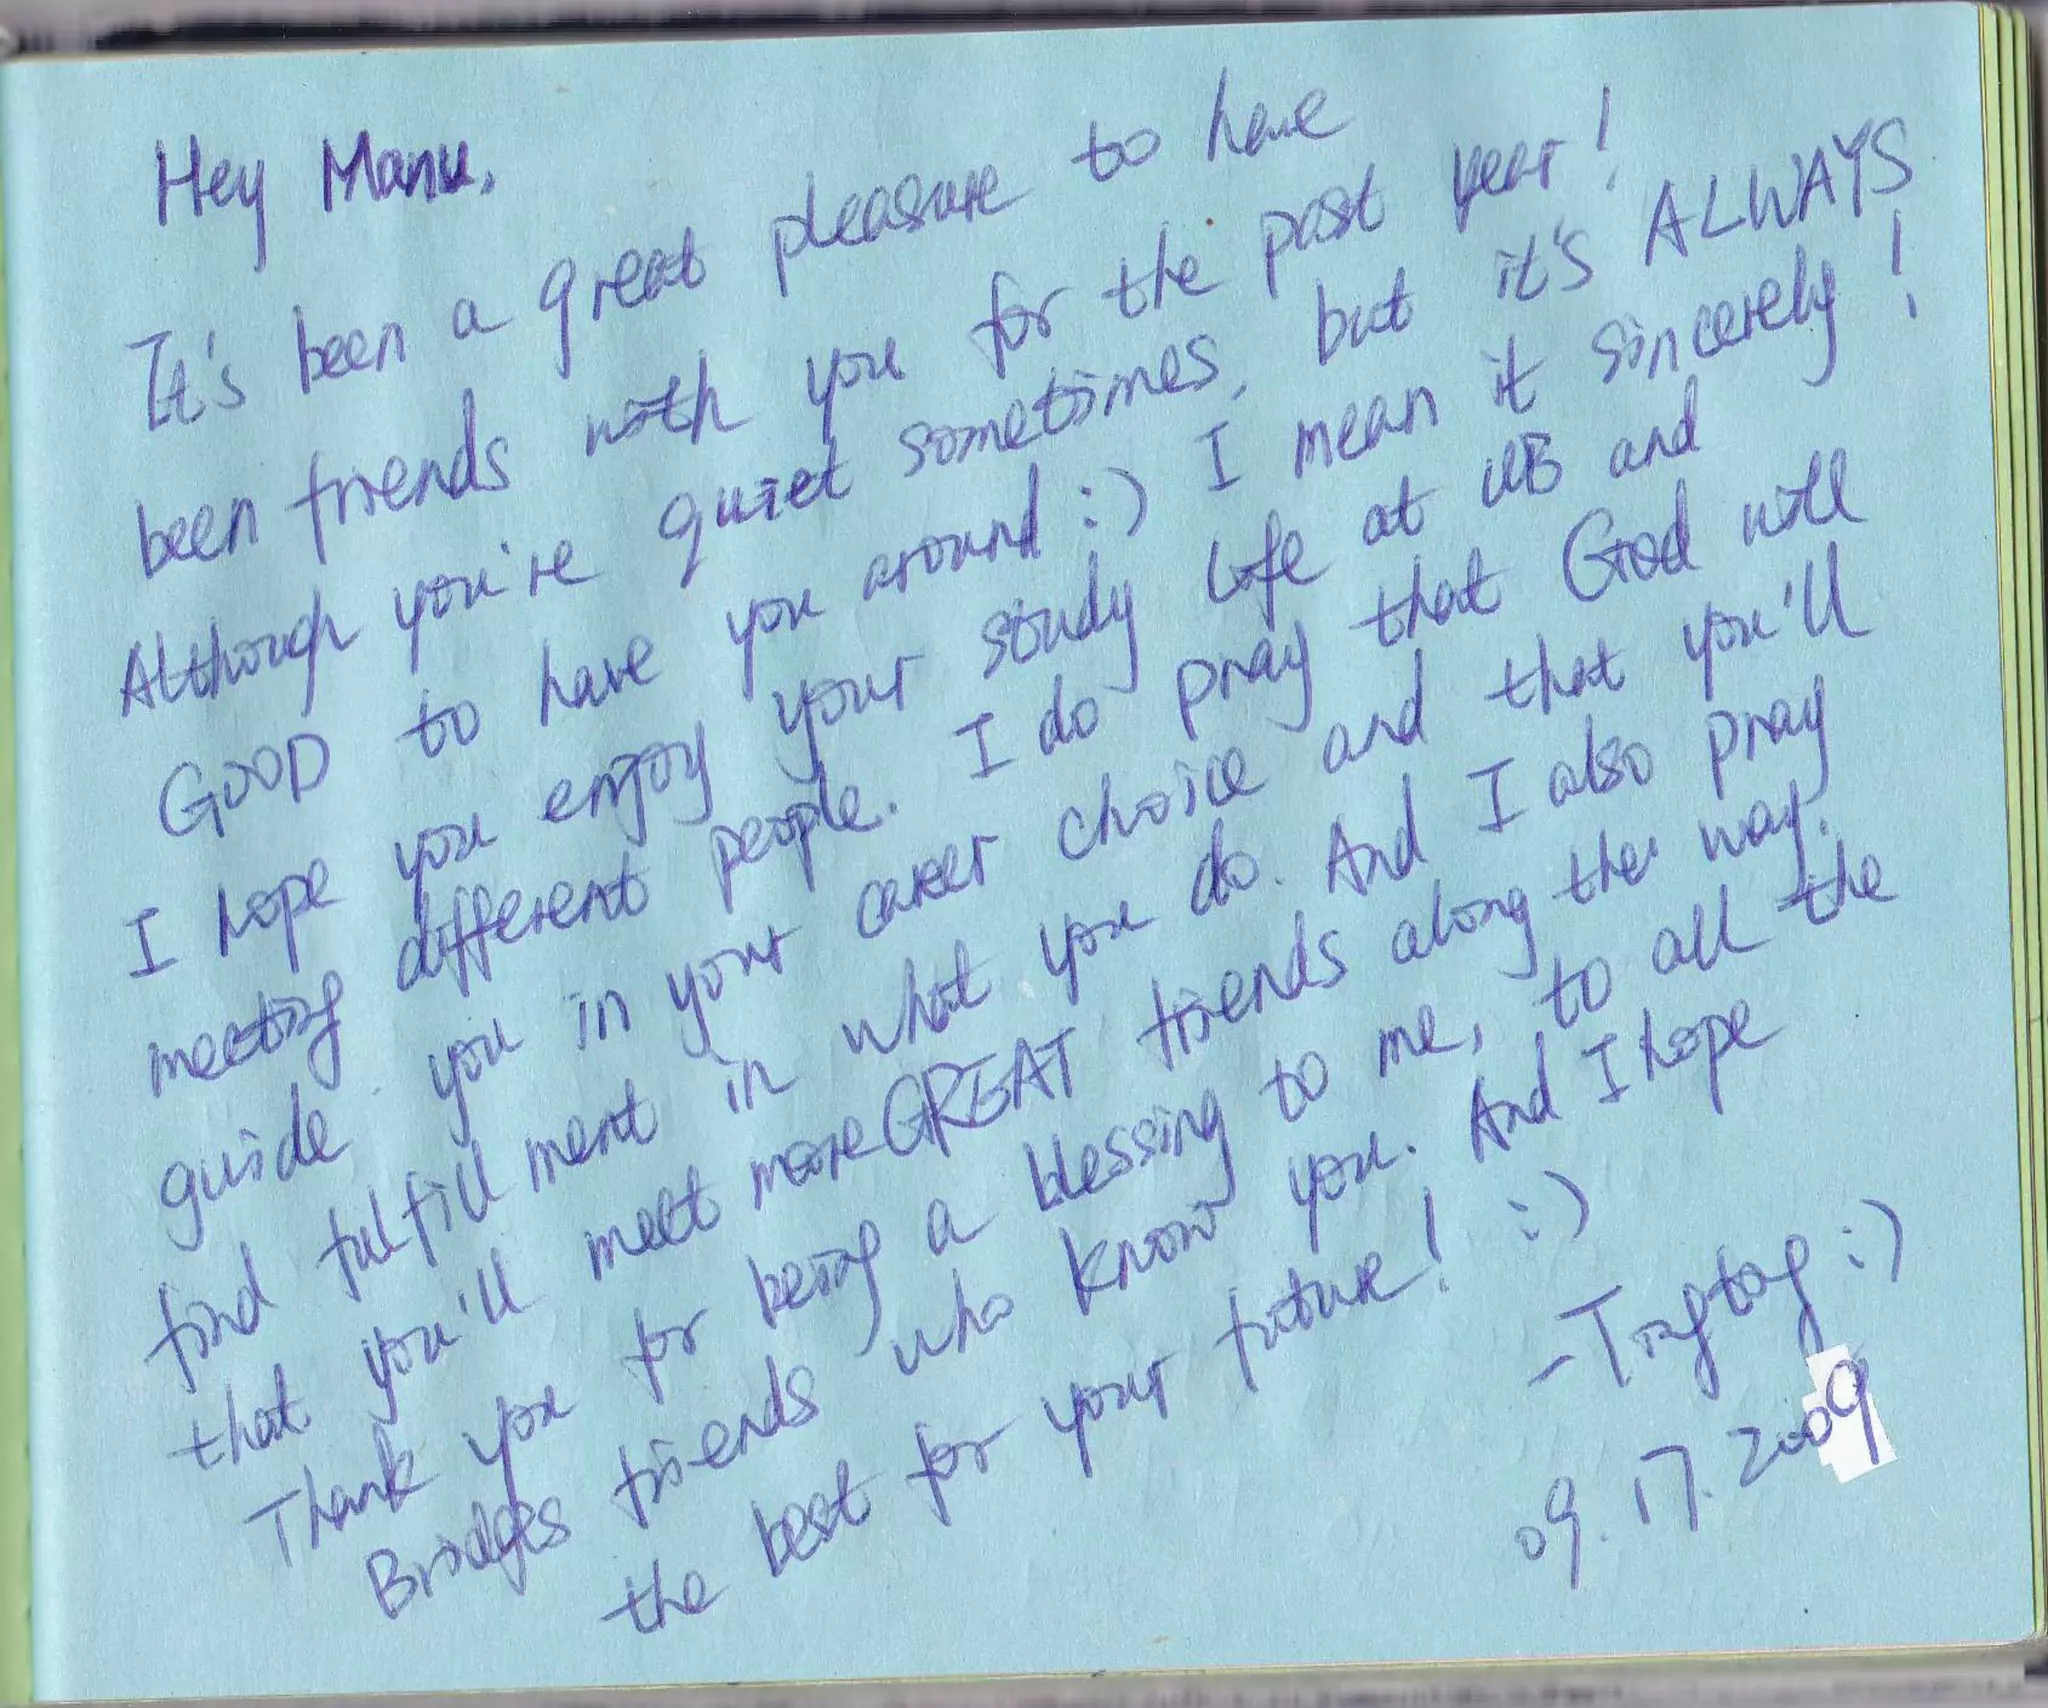 Hey Manu.
It's been a great pleasure to have
been friends with you for the past year!
Although you're quiet sometimes, but it's ALWAYS
GOOD to have you around :) I mean it sincerely!
I hope you enjoy your study life at UB and
meeting different people. I do pray that God will
guide you in your career choice and that you'll
find fulfillment in what you do. And I also pray
that you'll meet more GREAT friends along the way.
Thank you for being a blessing to me, to all the
Bridges friends who know you. And I hope
the best for your future! :)
-Tingting :)
09.17.2009